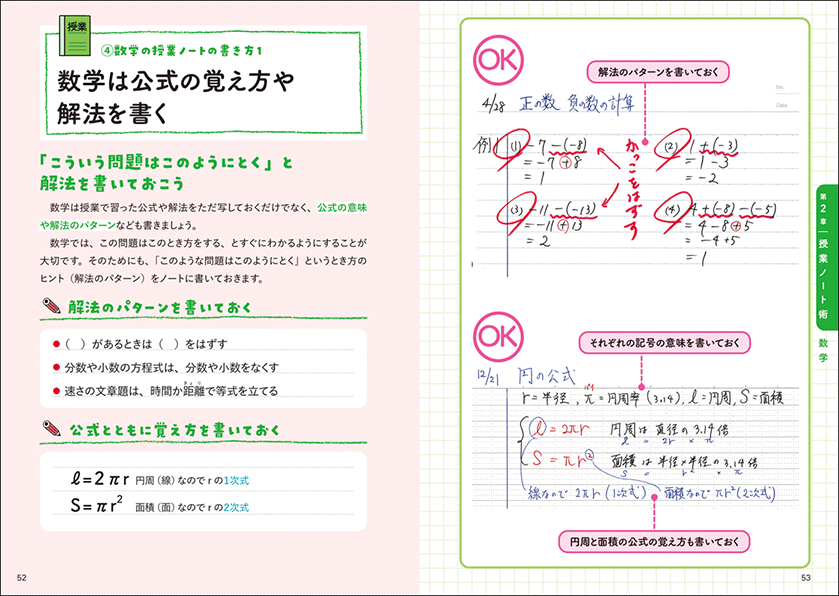 授業
④数学の授業ノートの書き方1
数学は公式の覚え方や
解法を書く
「こういう問題はこのようにとく」と
解法を書いておこう
数学は授業で習った公式や解法をただ写しておくだけでなく、公式の意味
や解法のパターンなども書きましょう。
数学では、この問題はこのとき方をする、とすぐにわかるようにすることが
大切です。そのためにも、「このような問題はこのようにとく」というとき方の
ヒント（解法のパターン）をノートに書いておきます。
解法のパターンを書いておく
●（　）があるときは（　）をはずす
●分数や小数の方程式は、分数や小数をなくす
●速さの文章題は、時間か距離で等式を立てる
きょり
公式とともに覚え方を書いておく
ℓ=2πr 円周（線）なのでrの1次式
S=πr² 面積（面）なのでrの2次式
52
OK
解法のパターンを書いておく
No.
Date
4/28 正の数 負の数の計算
例1 (1) -7-(-8)
= -7+8
= 1
(2) 1+(-3)
= 1-3
= -2
かっこをはずす
(3) -11-(-13)
= -11+13
= 2
(4) 4+(-8)-(-5)
= 4-8+5
= -4+5
= 1
OK
それぞれの記号の意味を書いておく
12/21 円の公式
パイ
r=半径, π=円周率(3.14), ℓ=円周, S=面積
ℓ=2πr 円周は直径の3.14倍
ℓ = 2r × π
S=πr² 面積は半径×半径の3.14倍
S = r² × π
線なので 2πr(1次式) 面積なので πr²(2次式)
円周と面積の公式の覚え方も書いておく
第2章 授業ノート術
数学
53